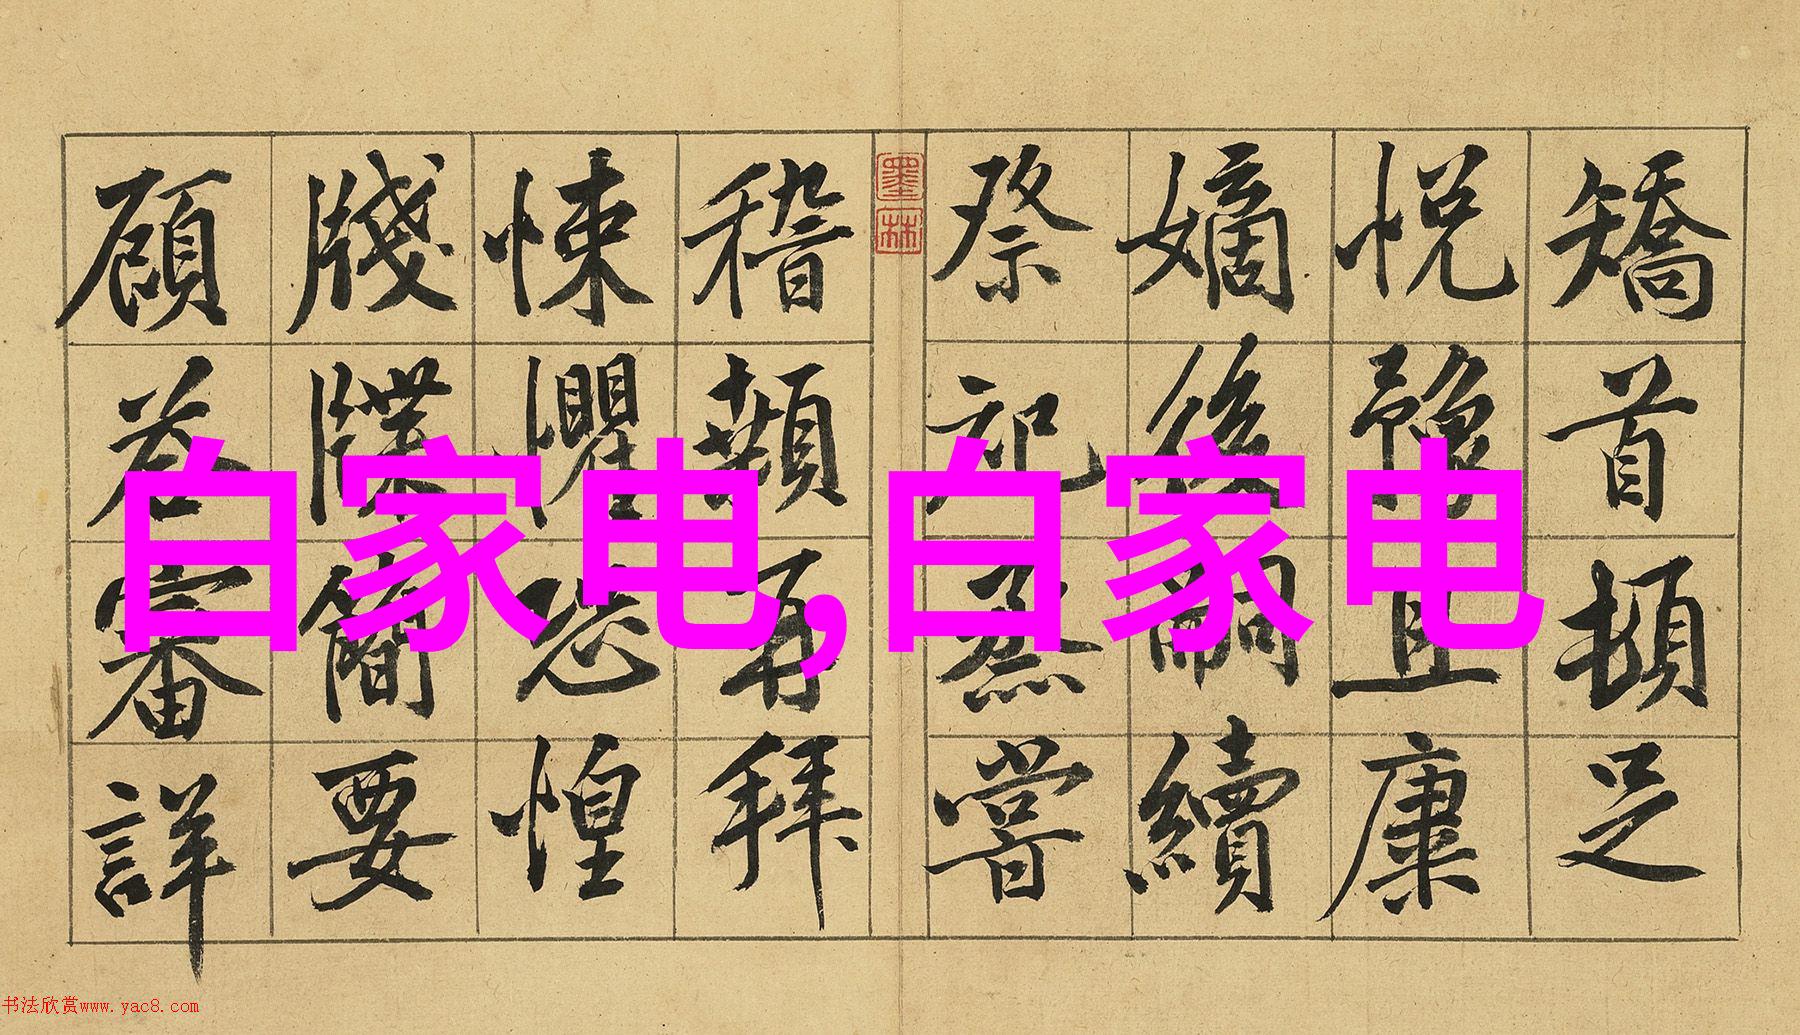 矯首頓足
悅豫且康
嫡後嗣續
祭祀烝嘗
墨林
稽顙再拜
悚懼恐惶
牋牒簡要
顧答審詳
白家电,白家电
书法欣赏www.yac8.com